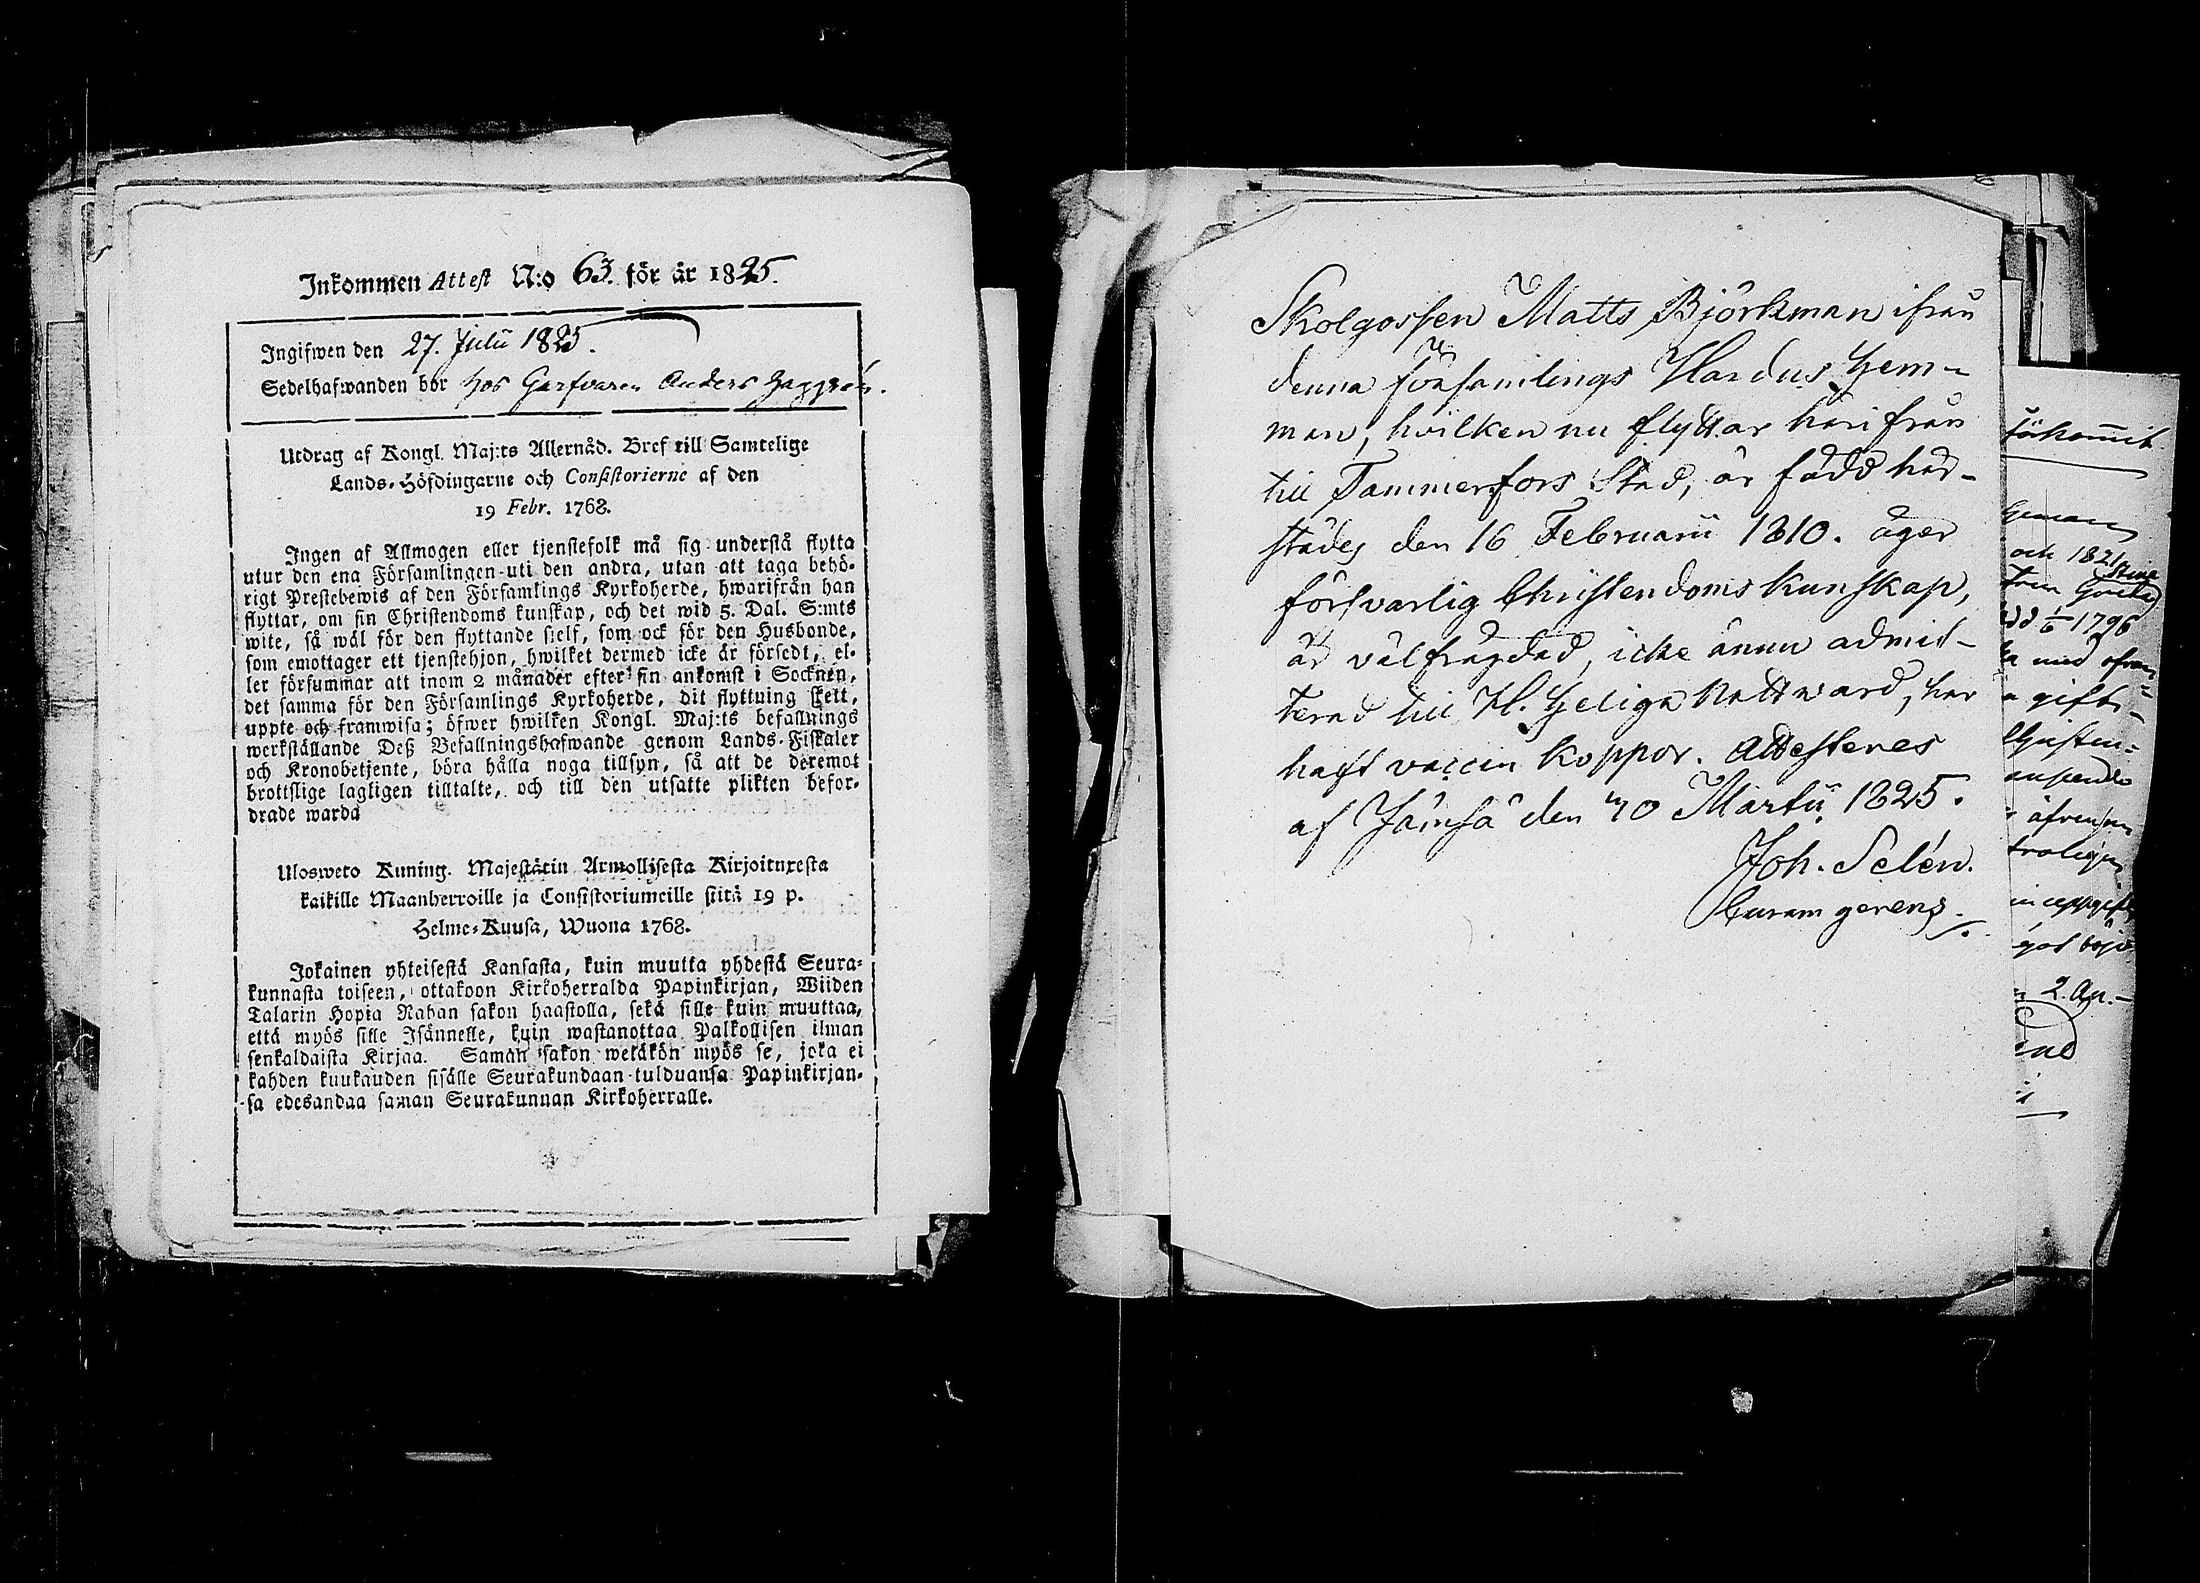 Inkommen Attest N:o 63. för år 1825.
Ingifwen den 27. Julii 1825.
Sedelhafwanden bor hos Garfvaren Anders
Utdrag af Kongl. Maj:ts Allernåd. Bref till Samtelige
Lands-Höfdingarne och Consistorierne af den
19 Febr. 1768.
Ingen af Allmogen eller tjenstefolk må sig understå flytta
utur den ena Församlingen uti den andra, utan att taga behö-
rigt Prestebewis af den Församlings Kyrkoherde, hwarifrån han
flyttar, om sin Christendoms kunskap, och det wid 5. Dal. S:mts
wite, så wäl för den flyttande sjelf, som ock för den Husbonde,
som emottager ett tjenstehjon, hwilket dermed icke är försedt, el-
ler försummar att inom 2 månader efter sin ankomst i Socknen,
det samma för den Församlings Kyrkoherde, dit flyttning skett,
uppte och framwisa; öfwer hwilken Kongl. Maj:ts befallnings
werkställande Deß Befallningshafwande genom Lands-Fiskaler
och Kronobetjente, böra hålla noga tillsyn, så att de deremot
brottslige lagligen tilltalte, och till den utsatte plikten befor-
drade warda
Ulosweto Kuning. Majestätin Armollisesta Kirjoituxesta
kaikille Maanherroille ja Consistoriumeille siitä 19 p.
Helme-Kuusa, Wuona 1768.
Jokainen yhteisestä Kansasta, kuin muutta yhdestä Seura-
kunnasta toiseen, ottakoon Kirkoherralda Papinkirjan, Wiiden
Talarin Hopia Rahan sakon haastolla, sekä sille kuin muuttaa,
että myös sille Isännelle, kuin wastanottaa Palkollisen ilman
senkaldaista Kirjaa. Saman sakon wetäkön myös se, joka ei
kahden kuukauden sisälle Seurakundaan tulduansa Papinkirjan-
sa edesandaa saman Seurakunnan Kirkoherralle.
Skolgossen Matts Björkman ifrån
denna församlings Hardus Hem-
man, hvilken nu flyttar härifrån
till Tammerfors Stad, är född här-
städes den 16 Februarii 1810. äger
försvarlig Christendoms kunskap,
är välfrägdad, icke ännu admit-
terad till H. Heliga Nattward, har
haft vaccin koppor. Attesteres
af Jämsä den 10 Martii 1825.
Joh. Selén.
Curam gerens.
och 1821
Stina
1/6 1796
med ofvan-
gift-
2. Ap.-